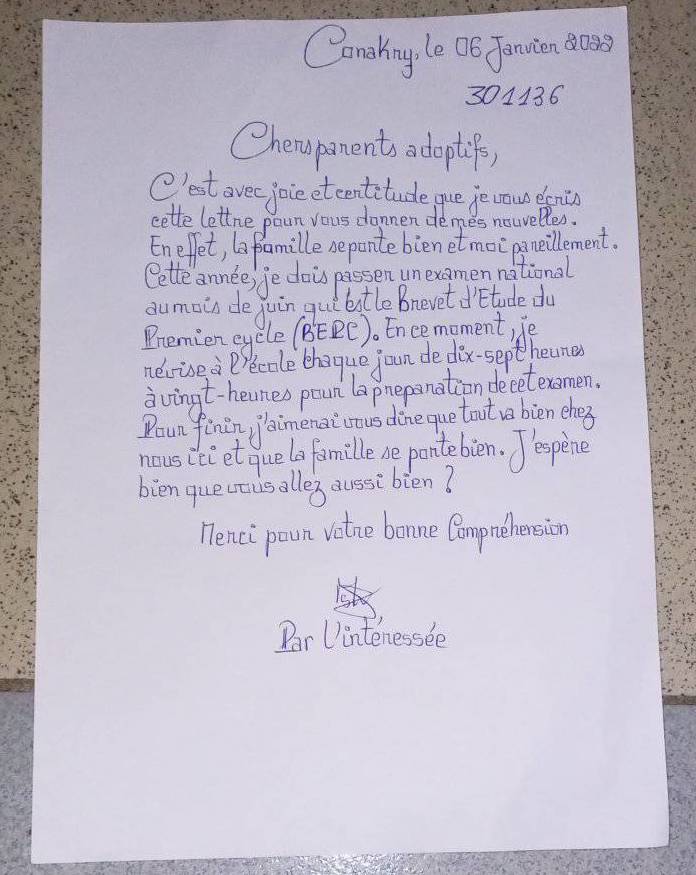 Conakry, le 06 Janvier 2022
301136
Chers parents adoptifs,
C'est avec joie et certitude que je vous écris
cette lettre pour vous donner de mes nouvelles.
En effet, la famille se porte bien et moi pareillement.
Cette année, je dois passer un examen national
au mois de juin qui est le Brevet d'Etude du
Premier cycle (BEPC). En ce moment, je
révise à l'école chaque jour de dix-sept heures
à vingt-heures pour la préparation de cet examen.
Pour finir, j'aimerai vous dire que tout va bien chez
nous ici et que la famille se porte bien. J'espère
bien que vous allez aussi bien ?
Merci pour votre bonne Compréhension
Par L'intéressée